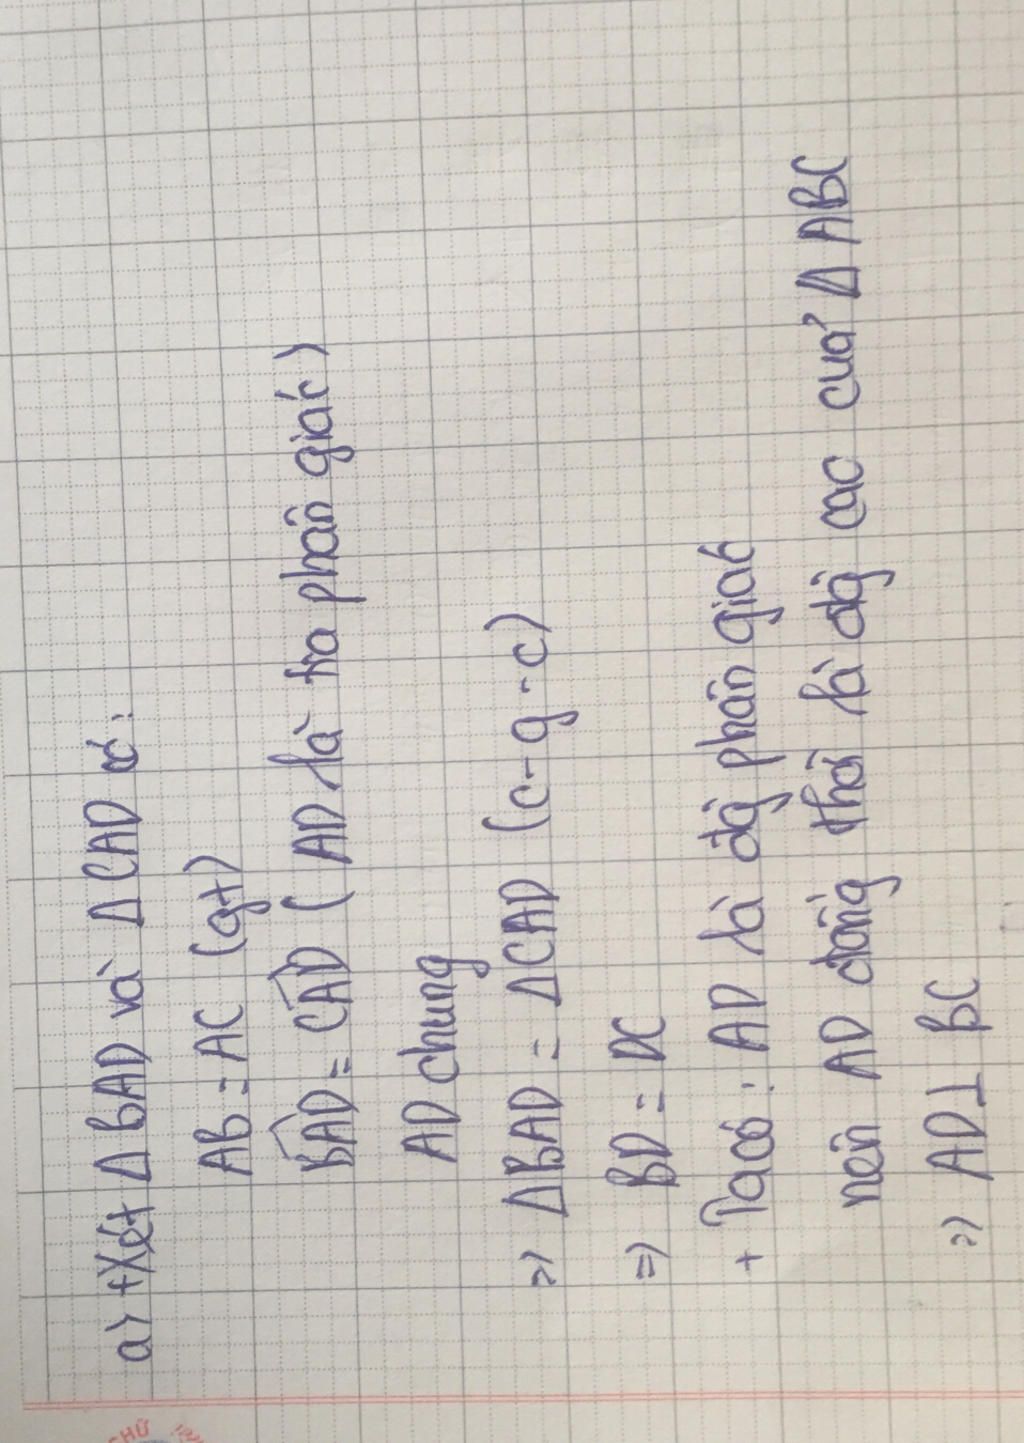 a) +Xét Δ BAD và Δ CAD có:
AB = AC (gt)
B̂AD = ĈAD ( AD là tia phân giác)
AD chung
=> ΔBAD = ΔCAD (c-g-c)
=> BD = DC
+ Ta có: AD là đg phân giác
nên AD đồng thời là đg cao của Δ ABC
=> AD⊥ BC
CHỮ